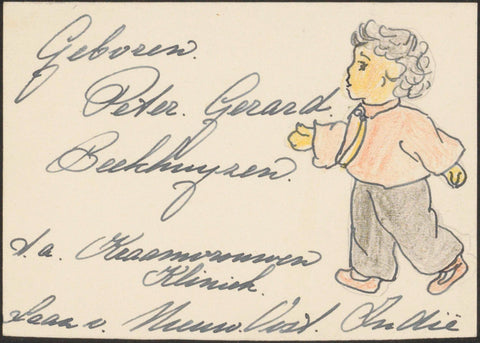 Geboren.
Peter. Gerard.
Beekhuyzen.
t.a. Kraamvrouwen
Kliniek.
Laan v. Nieuw. Oost. Indië